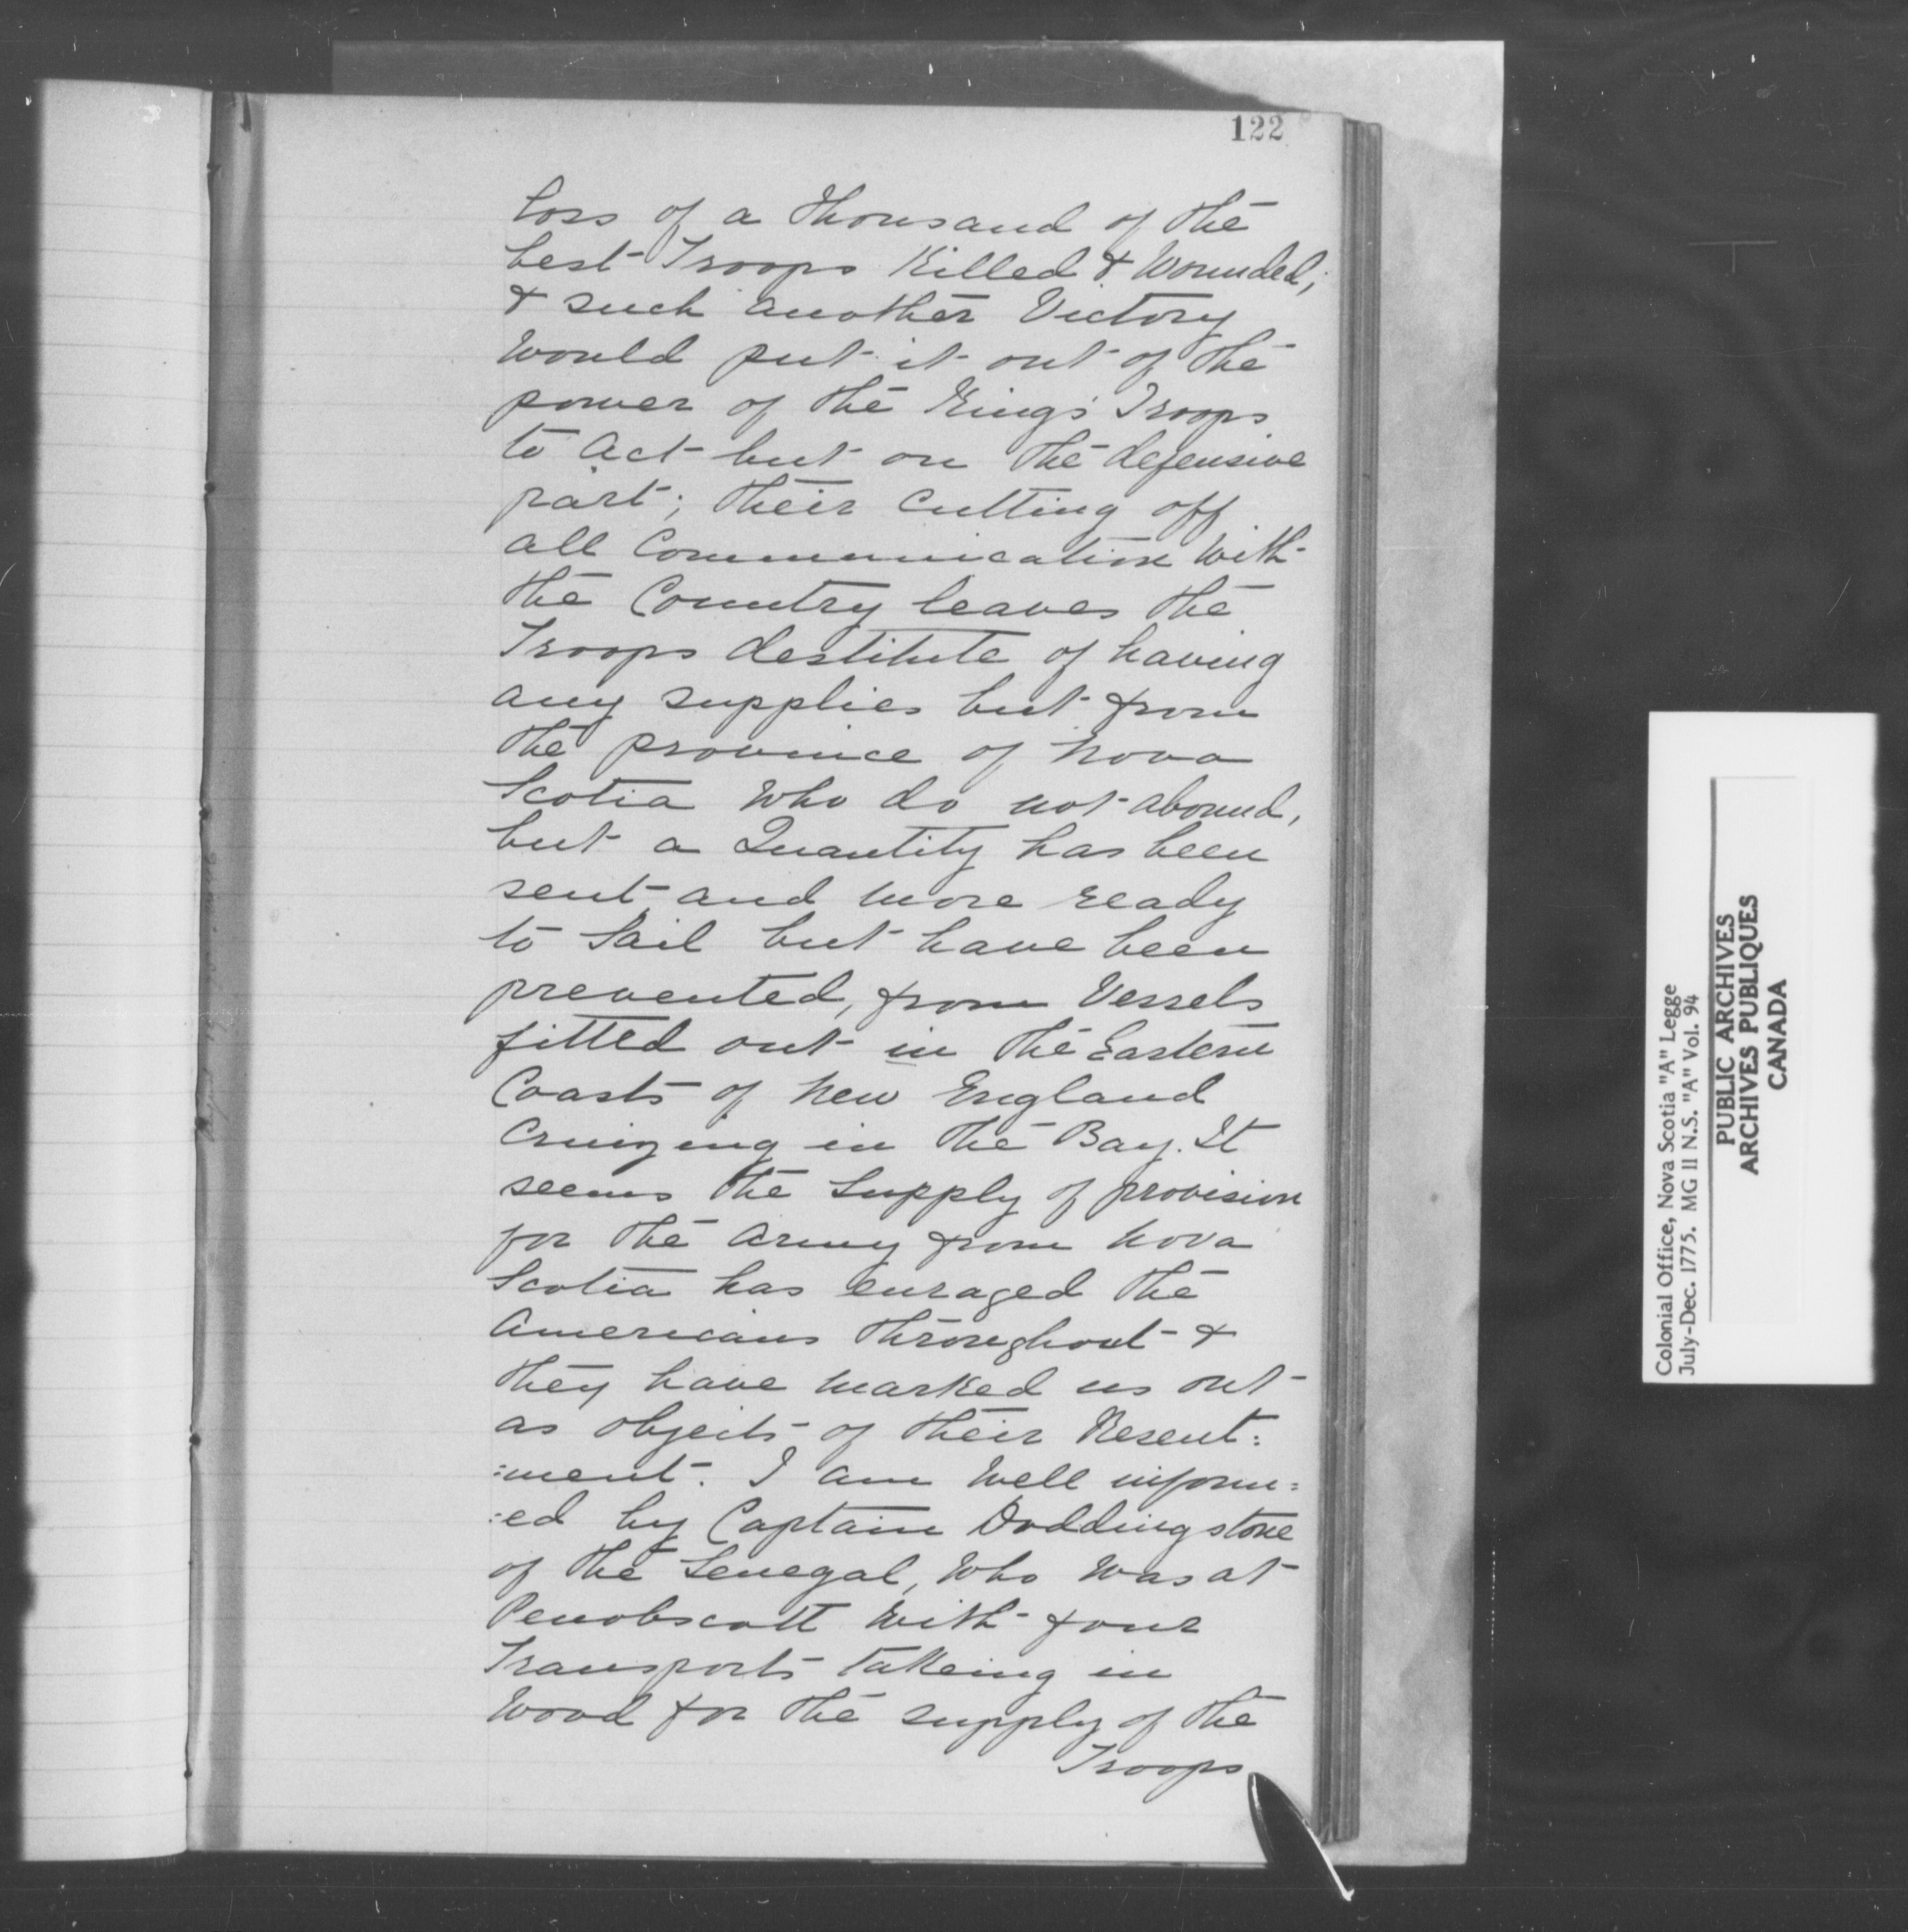 122
loss of a thousand of the
best Troops Killed & Wounded;
& such another Victory
Would put it out of the
power of the King's Troops
to act but on the defensive
part; their cutting off
all Communication With
the Country leaves the
Troops destitute of having
any supplies but from
the province of Nova
Scotia Who do not abound,
but a Quantity has been
sent and more ready
to Sail but have been
prevented, from Vessels
fitted out in the Eastern
Coasts of New England
Cruizing in the Bay. It
seems the Supply of provision
for the army from Nova
Scotia has enraged the
Americans throughout &
they have marked us out
as objects of their Resent:
:ment. I am Well inform=
:ed by Captain Doddingstone
of the Senegal, Who Was at
Penobscott With four
Transports takeing in
Wood for the supply of the
Troops
Colonial Office, Nova Scotia "A" Legge
July-Dec. 1775. MG II N.S. "A" Vol. 94
PUBLIC ARCHIVES
ARCHIVES PUBLIQUES
CANADA